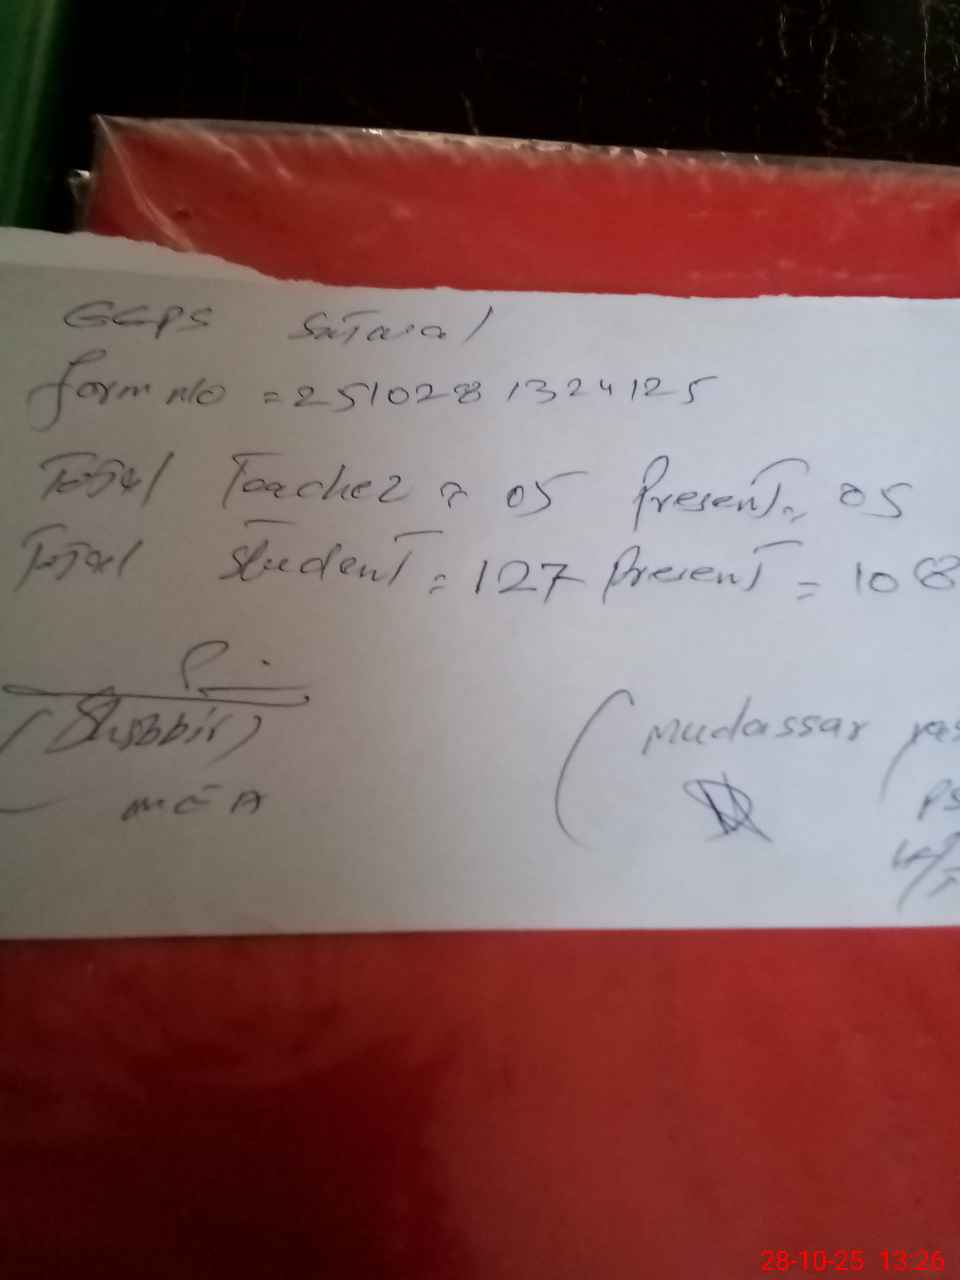 GCPS Sutaral
form no = 2510281324125
Total Teacher = 05 Present = 05
Total Student = 127 Present = 108
(Shabbir)
MEA
(Mudassar
PS
28-10-25 13:26